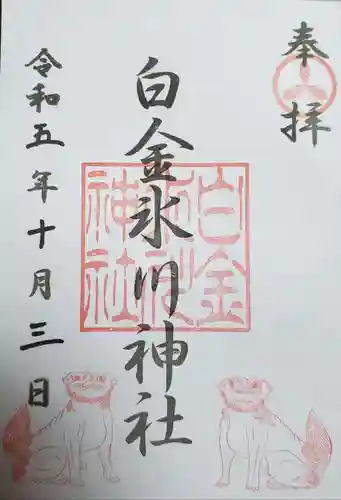 奉拝
白金氷川神社
令和五年十月三日
白金
氷川
神社